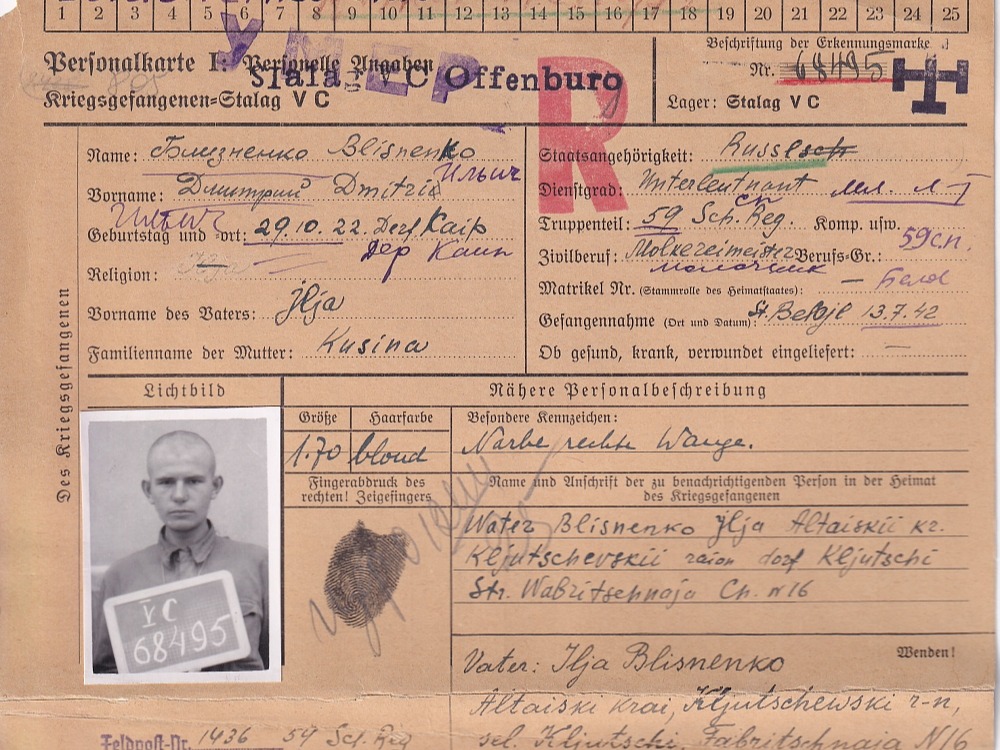 1 2 3 4 5 6 7 8 9 10 11 12 13 14 15 16 17 18 19 20 21 22 23 24 25
УМЕР
Personalkarte I: Personelle Angaben
Stalag V C Offenburg
Kriegsgefangenen-Stalag V C
R
Beschriftung der Erkennungsmarke
Nr. 68495
Lager: Stalag V C
Des Kriegsgefangenen
Name: Близненко Blisnenko
Ильич
Vorname: Дмитрий Dmitrii
Ильич
Geburtstag und -ort: 29.10.22. Dorf Kaip
Дер Каип
Religion:
Vorname des Vaters: Jlja
Familienname der Mutter: Kusina
Staatsangehörigkeit: Russe
Dienstgrad: Unterleutnant мл. л-т
сп
Truppenteil: 59 Sch. Reg. Komp. usw.
59 сп.
Zivilberuf: Molkereimeister Berufs-Gr.:
Matrikel Nr. (Stammrolle des Heimatstaates): —
Gefangennahme (Ort und Datum): St. 13.7.42
Ob gesund, krank, verwundet eingeliefert: —
Lichtbild
Nähere Personalbeschreibung
Größe Haarfarbe
1.70 blond
Besondere Kennzeichen:
Narbe rechte Wange.
Fingerabdruck des rechten! Zeigefingers
Name und Anschrift der zu benachrichtigenden Person in der Heimat
des Kriegsgefangenen
Water Blisnenko Jlja Altaiskii kr.
Kljutschevskii raion dorf Kljutschi
Str. Wabritschnaja Ch. N16
V C
68495
Wenden!
Vater: Ilja Blisnenko
Altaiski krai, Kljutschewski r-n,
sel. Kljutschi, Fabritschnaja N16
Feldpost-Nr. 1436 59 Sch. Reg